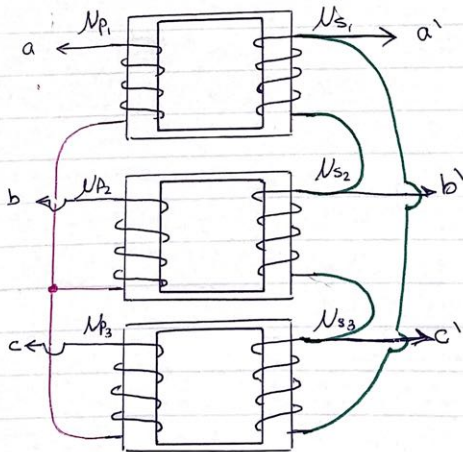 a Np₁ Ns₁ a'
b Np₂ Ns₂ b'
c Np₃ Ns₃ c'